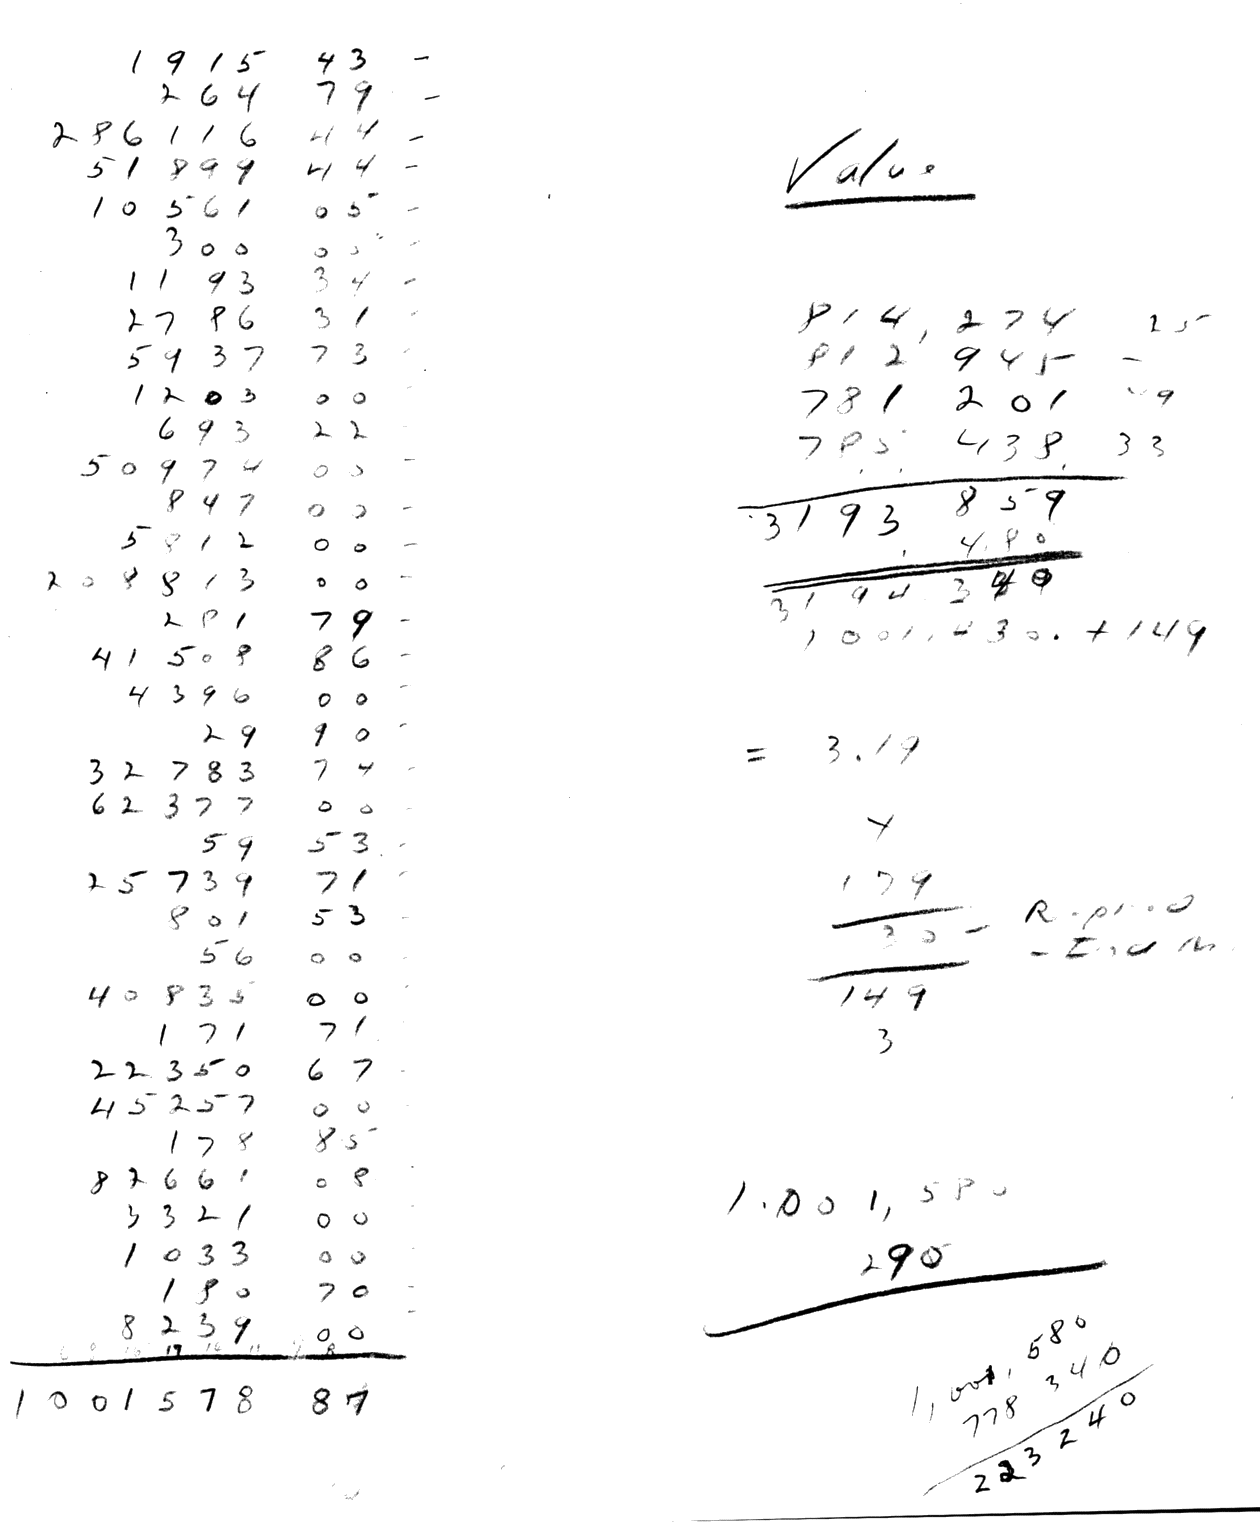 1915 43 -
264 79 -
286116 44 -
51899 44 -
10561 05 -
300 00 -
1193 34 -
2786 31 -
5937 73
1203 00
693 22
50974 00
847 00
5812 00 -
208813 00
281 79
41508 86 -
4396 00
29 90
32783 74
62377 00
59 53 -
25739 71
801 53
56 00
40835 00
171 71
22350 67
45257 00
178 85
82661 08
3321 00
1033 00
180 70
8239 00
1001578 87
Value
814,274 25
812 945 -
781 201 49
785 438. 33
3193 859
480
3194 340
1001,430. + 149
= 3.19
179
30 -
149
3
1.001,580
290
1,001,580
778 340
223240